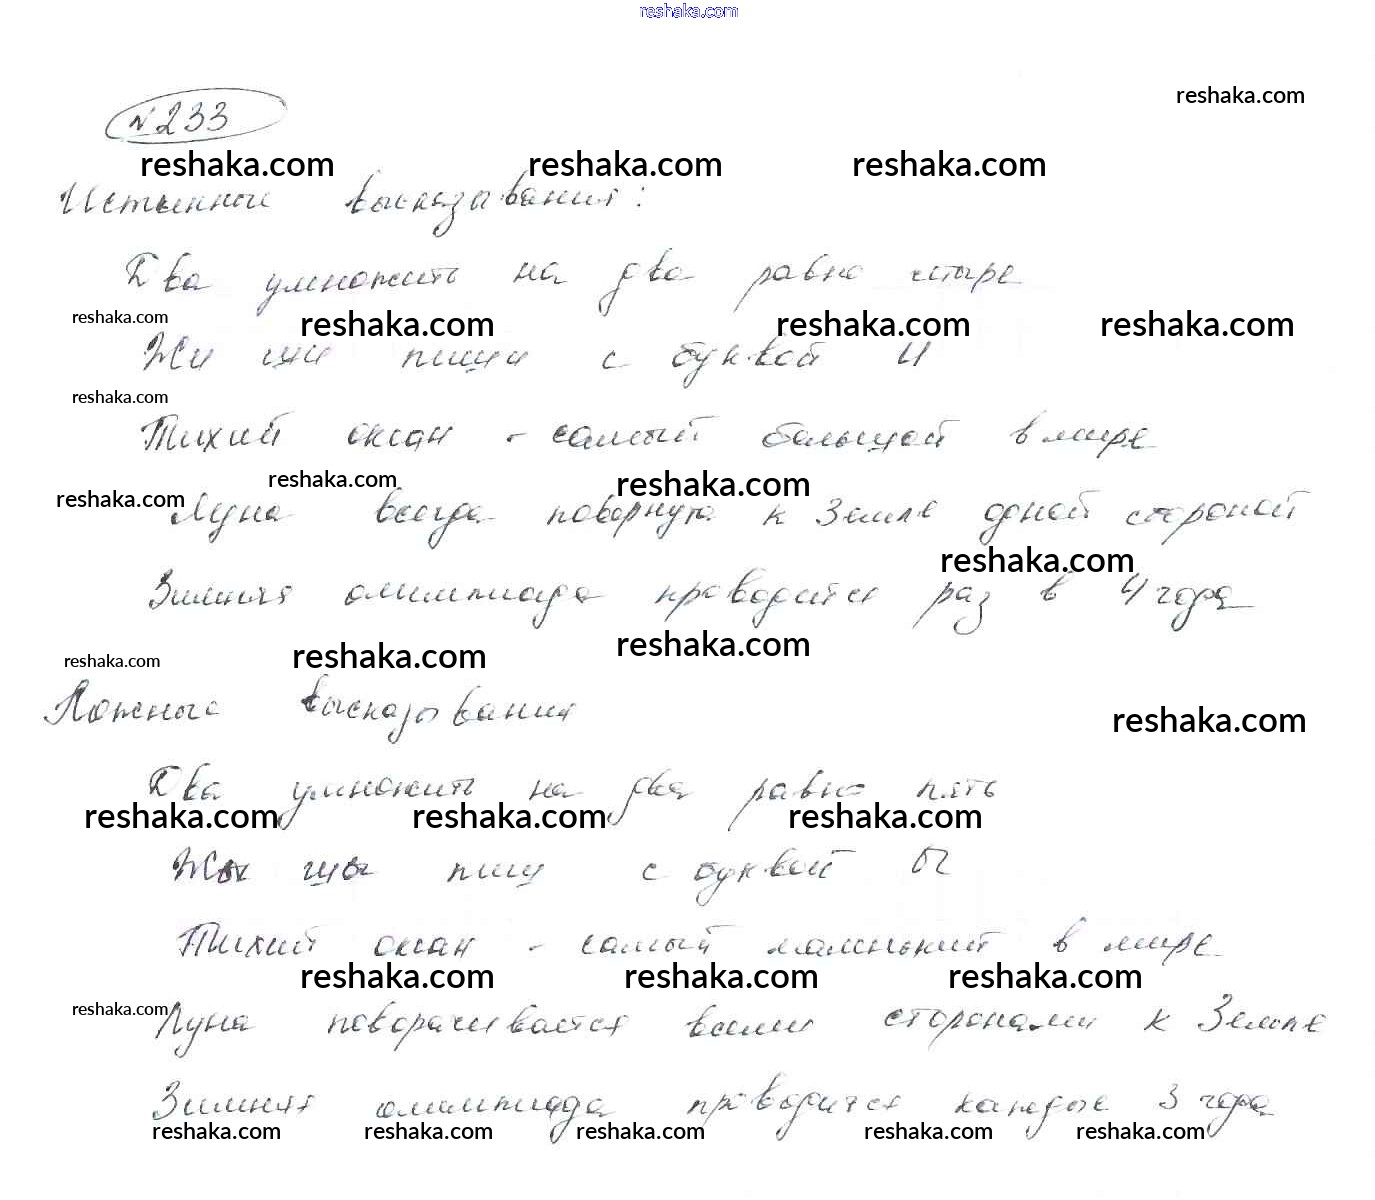 reshaka.com
reshaka.com
№233
reshaka.com reshaka.com reshaka.com
Истинные высказывания:
Два умножить на два равно четыре
reshaka.com reshaka.com reshaka.com reshaka.com
Жи ши пиши с буквой И
reshaka.com
Тихий океан - самый большой в мире
reshaka.com reshaka.com reshaka.com
Луна всегда повернута к Земле одной стороной
reshaka.com
Зимняя олимпиада проводится раз в 4 года
reshaka.com reshaka.com reshaka.com
Ложные высказывания
reshaka.com
Два умножить на два равно пять
reshaka.com reshaka.com reshaka.com
Жы шы пиш с буквой Ы
Тихий океан - самый маленький в мире
reshaka.com reshaka.com reshaka.com
reshaka.com
Луна поворачивается всеми сторонами к Земле
Зимняя олимпиада проводится каждые 3 года
reshaka.com reshaka.com reshaka.com reshaka.com reshaka.com